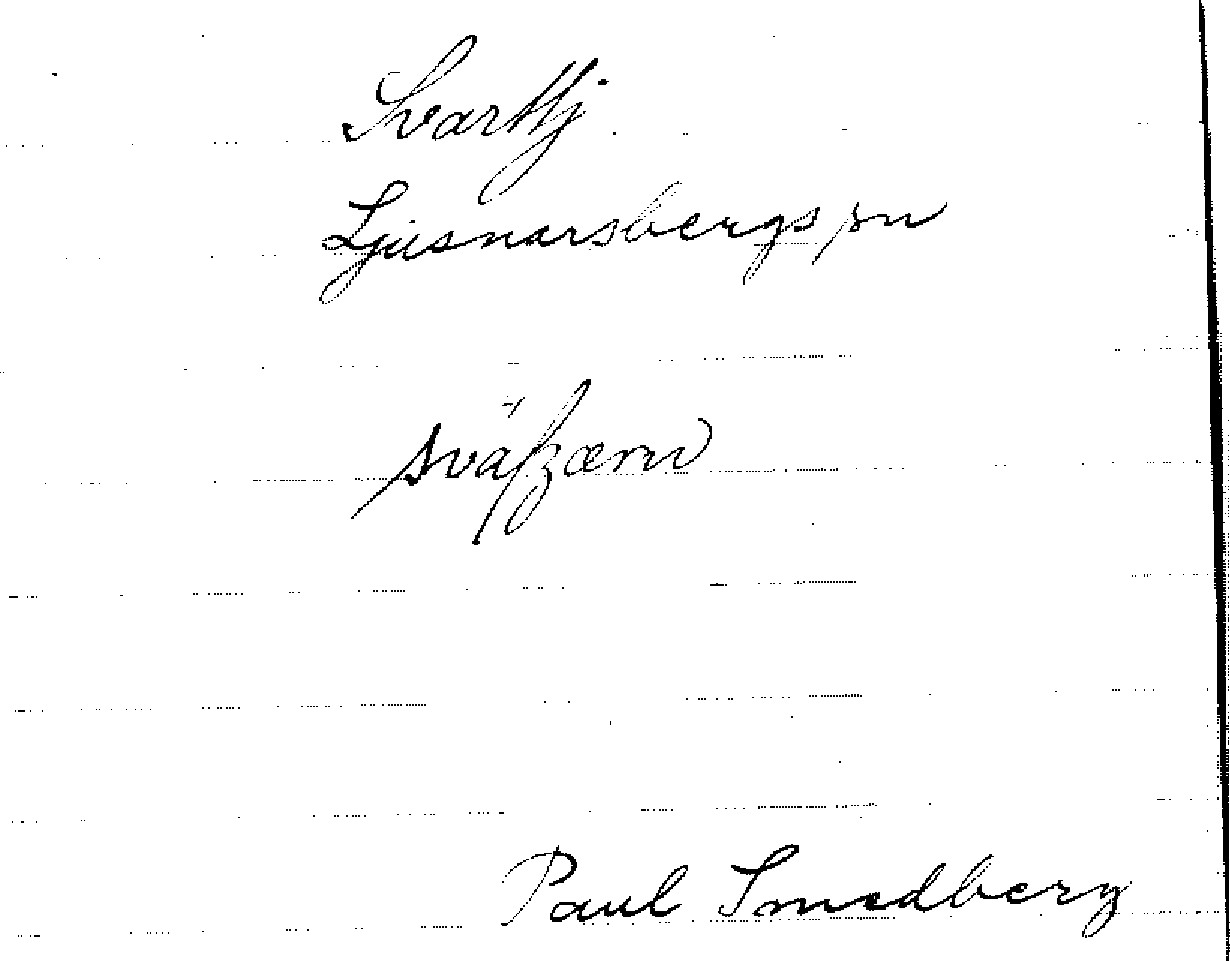 Svarttj
Ljusnarsbergs sn
Paul Smedberg